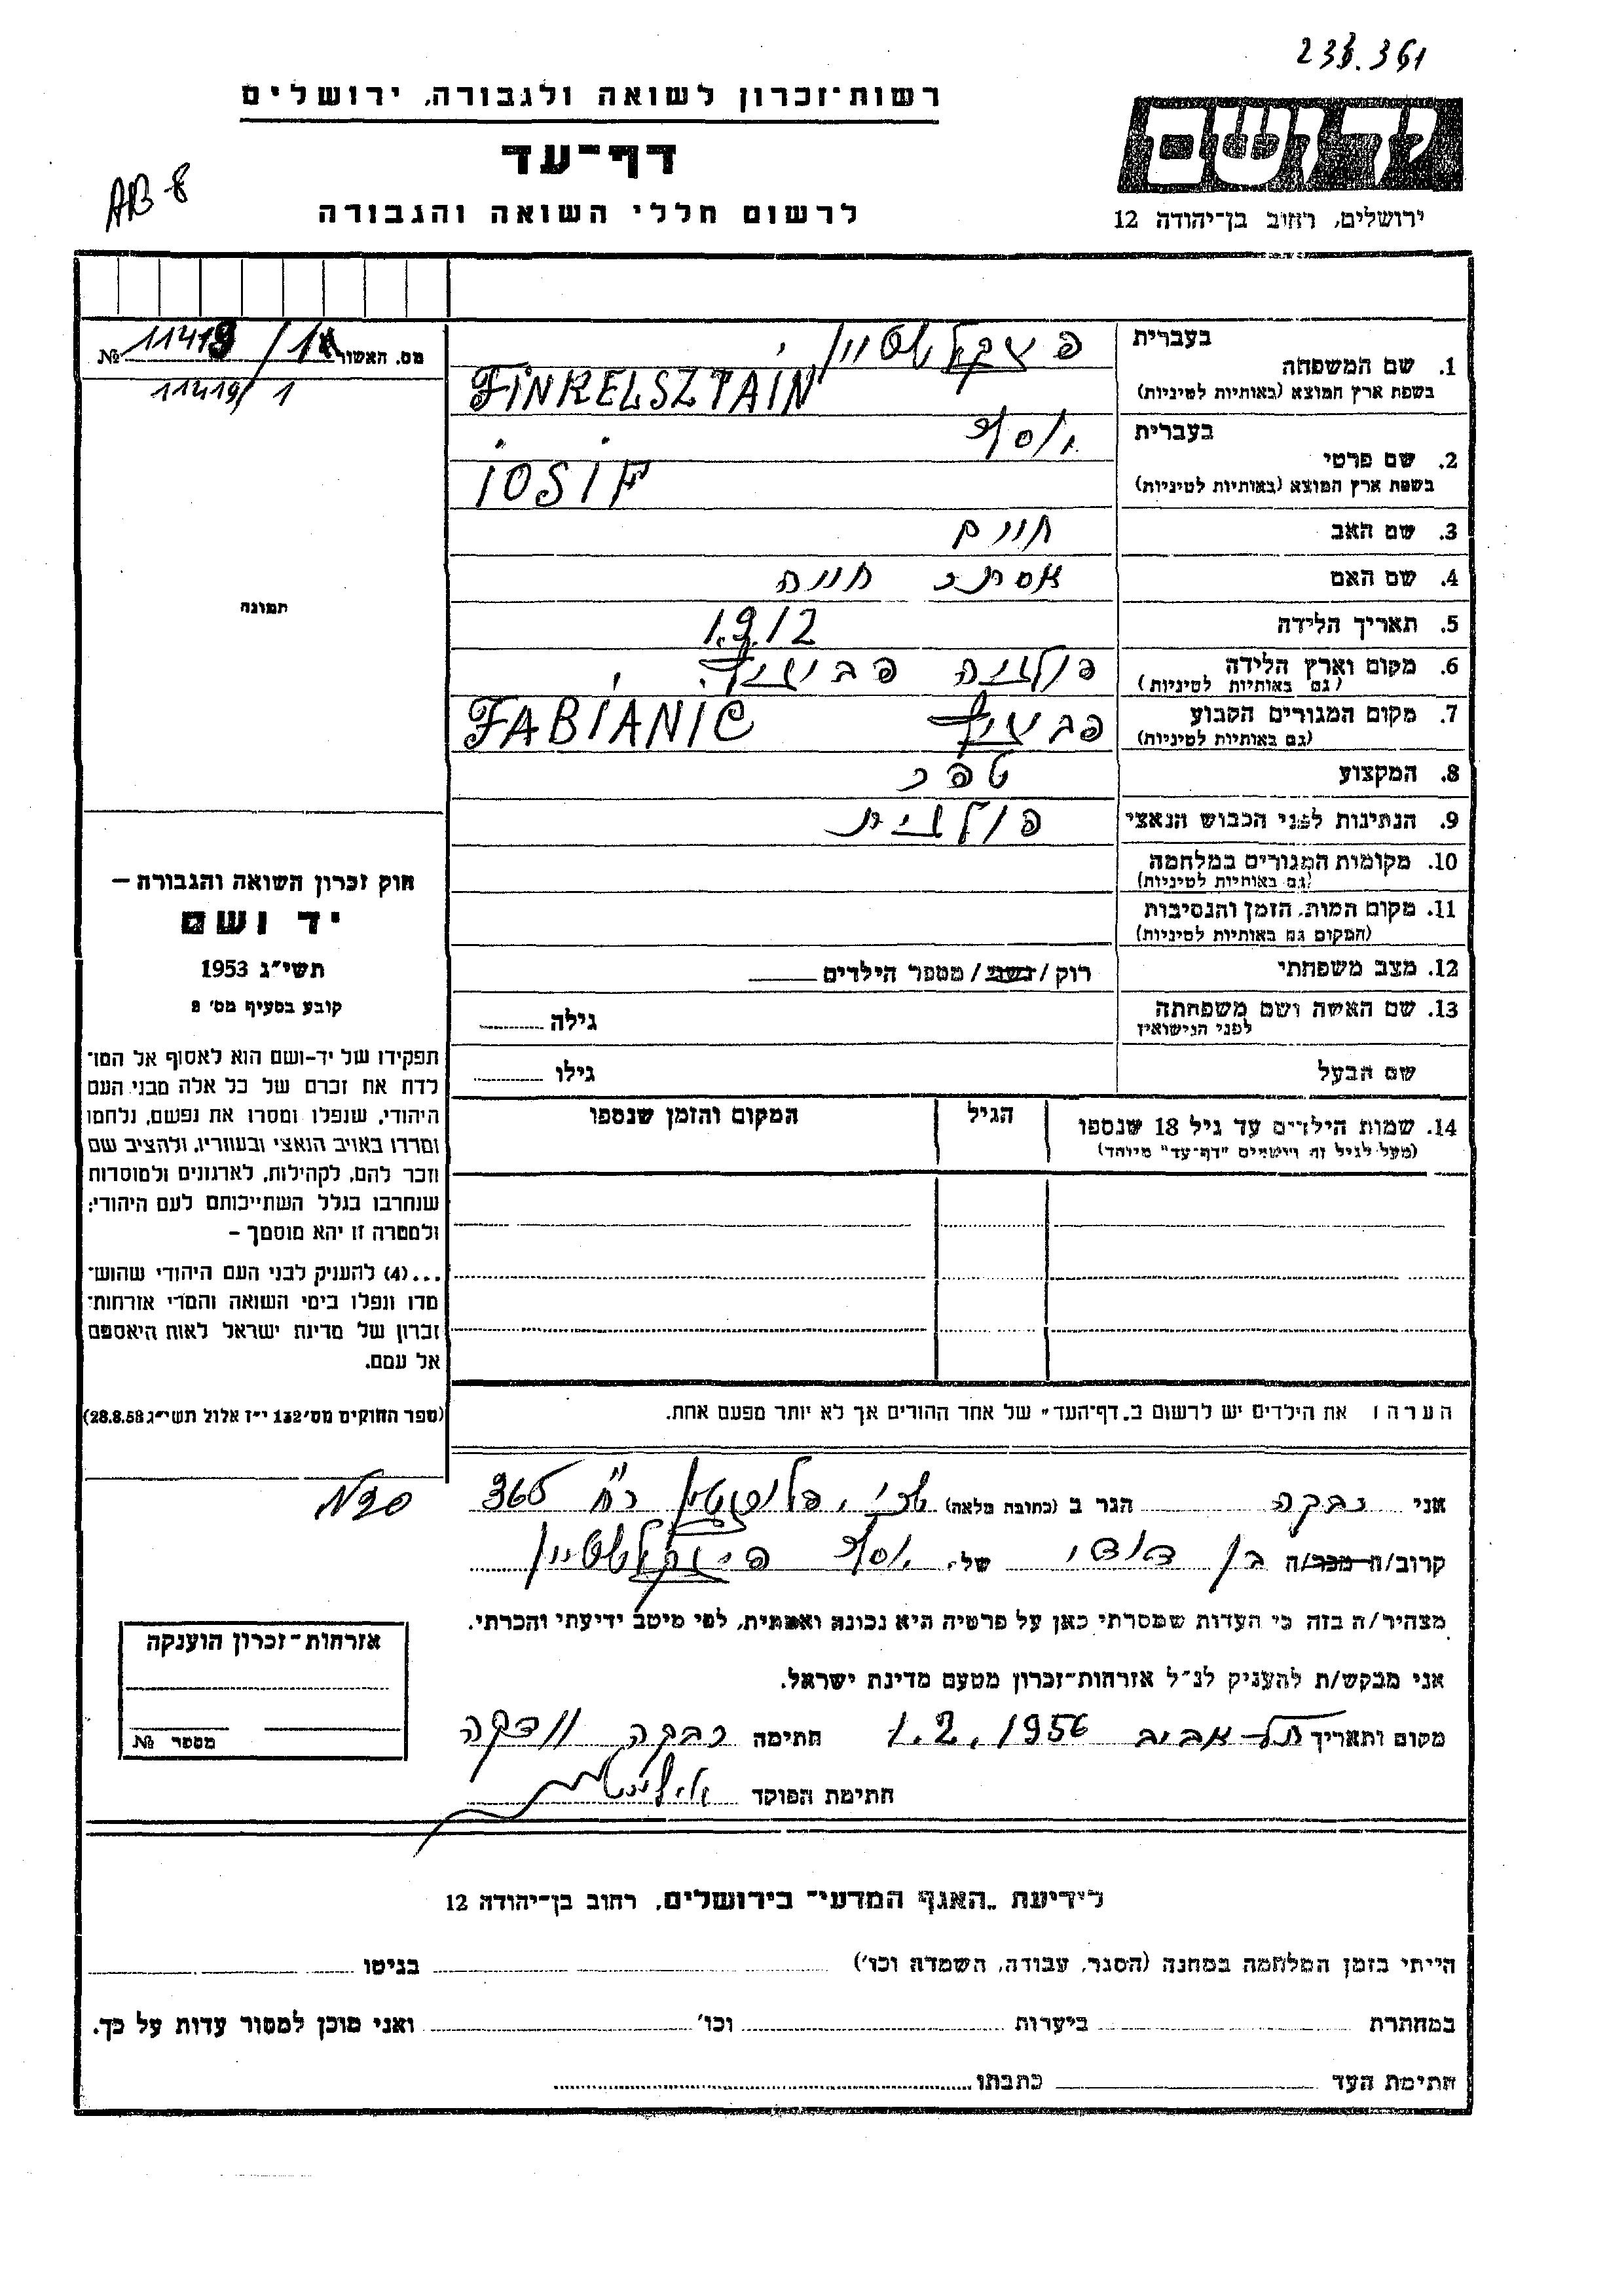 233.361
רשות-זכרון לשואה ולגבורה, ירושלים
דף-עד
לרשום חללי השואה והגבורה
AB-8
ידושם
ירושלים, רחוב בן-יהודה 12
מס. האשור 11419/1 №
11419/1
תמונה
בעברית
1. שם המשפחה
בשפת ארץ המוצא (באותיות לטיניות)
פינקלשטיין
FINKELSZTAIN
בעברית
2. שם פרטי
בשפת ארץ המוצא (באותיות לטיניות)
יוסף
IOSIF
3. שם האב חיים
4. שם האם אסתר חוה
5. תאריך הלידה 1912
6. מקום וארץ הלידה פולניה
(גם באותיות לטיניות)
7. מקום המגורים הקבוע FABIANIC
(גם באותיות לטיניות)
8. המקצוע ספר
9. הנתינות לפני הכבוש הנאצי פולנית
10. מקומות המגורים במלחמה
(גם באותיות לטיניות)
11. מקום המות, הזמן והנסיבות
(המקום גם באותיות לטיניות)
12. מצב משפחתי רוק / נשוי / מספר הילדים
13. שם האשה ושם משפחתה גילה
לפני הנישואין
שם הבעל גילו
14. שמות הילדים עד גיל 18 שנספו הגיל המקום והזמן שנספו
(מעל לגיל זה רושמים "דף-עד" מיוחד)
חוק זכרון השואה והגבורה –
יד ושם
תשי"ג 1953
קובע בסעיף מס' 2
תפקידו של יד-ושם הוא לאסוף אל המו־
לדת את זכרם של כל אלה מבני העם
היהודי, שנפלו ומסרו את נפשם, נלחמו
ומרדו באויב הנאצי ובעוזריו, ולהציב שם
וזכר להם, לקהילות, לארגונים ולמוסדות
שנחרבו בגלל השתייכותם לעם היהודי;
ולמטרה זו יהא מוסמך –
...(4) להעניק לבני העם היהודי שהוש־
מדו ונפלו בימי השואה והמרי אזרחות־
זכרון של מדינת ישראל לאות היאספם
אל עמם.
(ספר החוקים מס' 132 י"ז אלול תשי"ג 28.8.53)
הערה: את הילדים יש לרשום ב"דף-העד" של אחד ההורים אך לא יותר מפעם אחת.
אני רבקה הגר ב (כתובת מלאה) 365
קרוב/ה מכר/ה בן דודי של יוסף פינקלשטיין
מצהיר/ה בזה כי העדות שמסרתי כאן על פרטיה היא נכונה ואמתית, לפי מיטב ידיעתי והכרתי.
אני מבקש/ת להעניק לנ"ל אזרחות-זכרון מטעם מדינת ישראל.
מקום ותאריך תל-אביב 1.2.1956 חתימה רבקה
חתימת הפוקד
אזרחות-זכרון הוענקה
מספר №
לידיעת "האגף המדעי" בירושלים, רחוב בן-יהודה 12
הייתי בזמן המלחמה במחנה (הסגר, עבודה, השמדה וכו') בגיטו
במחתרת ביערות וכו' ואני מוכן למסור עדות על כך.
חתימת העד כתבתו